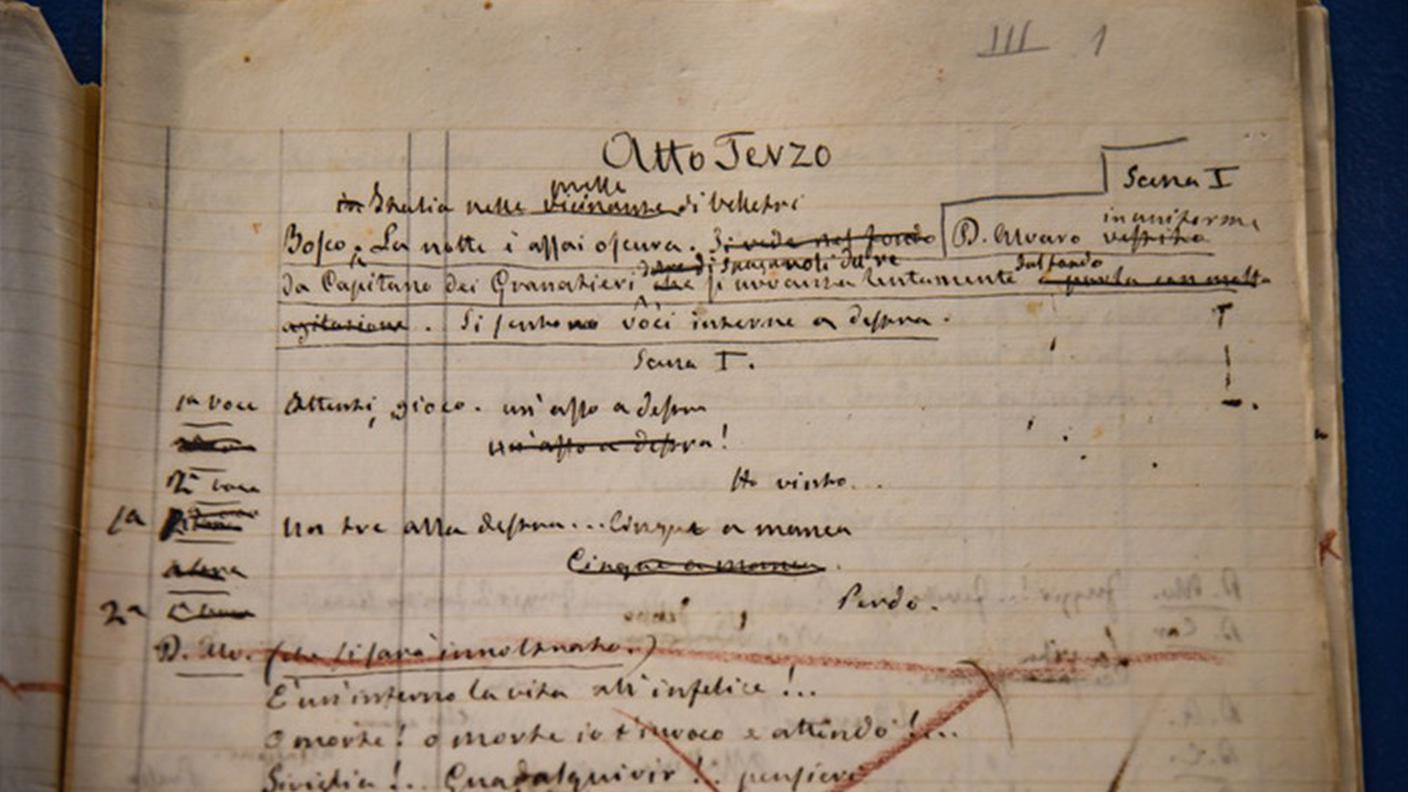 III 1
Atto Terzo
Scena I
nelle
in Italia nelle vicinanze di Velletri
in uniforme
Bosco. La notte è assai oscura. Si vede nel fondo D. Alvaro vestito
di Spagnoli del re
dal fondo
da Capitano dei Granatieri che si avvanza lentamente e parla con molta
agitazione. Si sentono voci interne a destra.
Scena I.
1a voce Attenti, gioco. un'asso a destra
un'asso a destra!
2a voce Ho vinto...
1a Un tre alla destra... Cinque a manca
altra Cinque a manca.
2a Perdo.
D. Alv. (che si sarà innoltrato.)
È un'inferno la vita all'infelice!..
O morte! o morte io t'invoco e attendo!...
Siviglia!.. Guadalquivir!.. pensieri